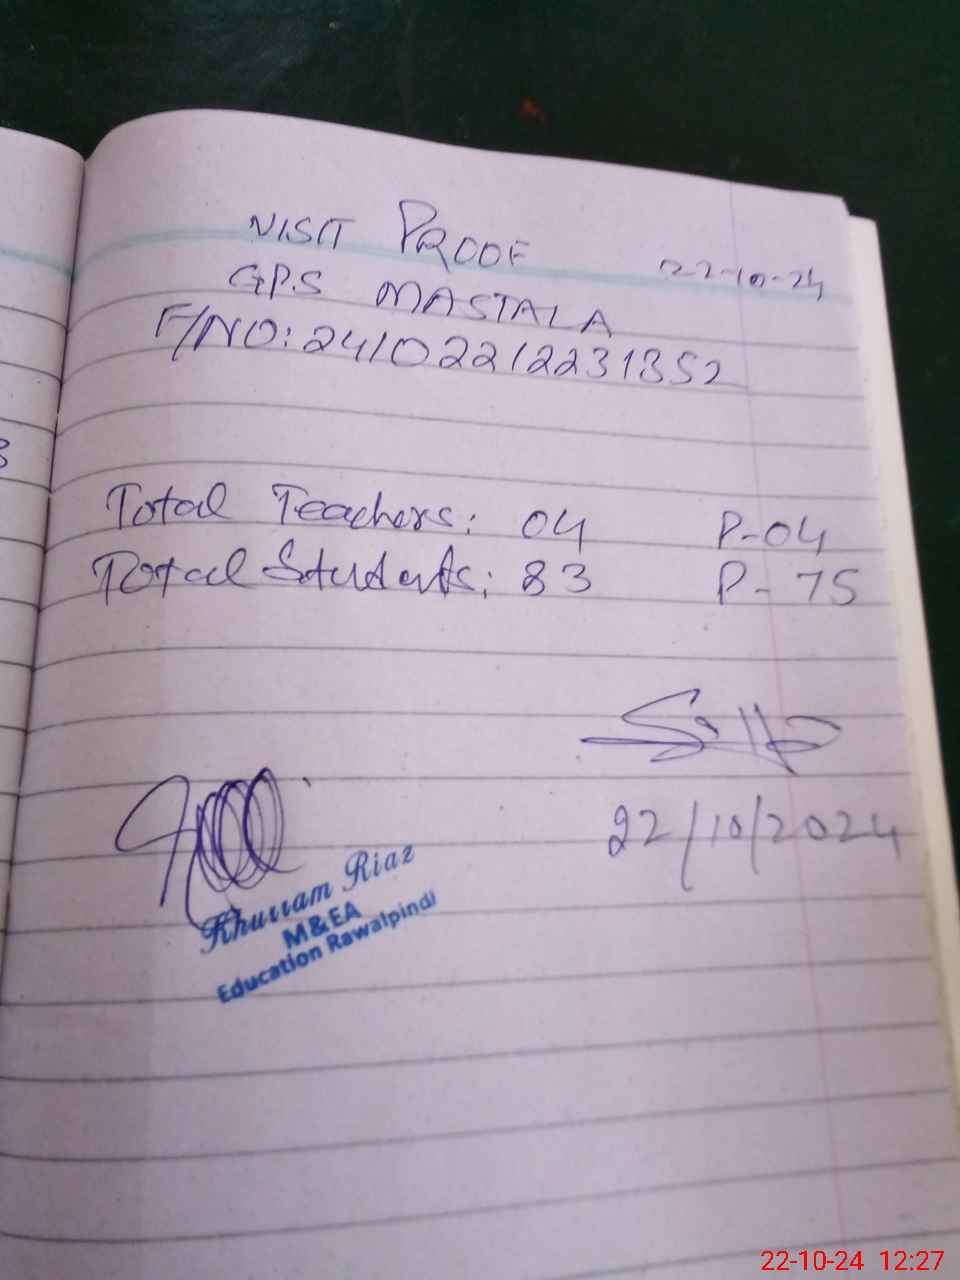 VISIT PROOF
22-10-24
G.P.S MASTALA
F/NO: 241022122231352
Total Teachers: 04 P-04
Total Students: 83 P-75
22/10/2024
Khurram Riaz
M&EA
Education Rawalpindi
22-10-24 12:27